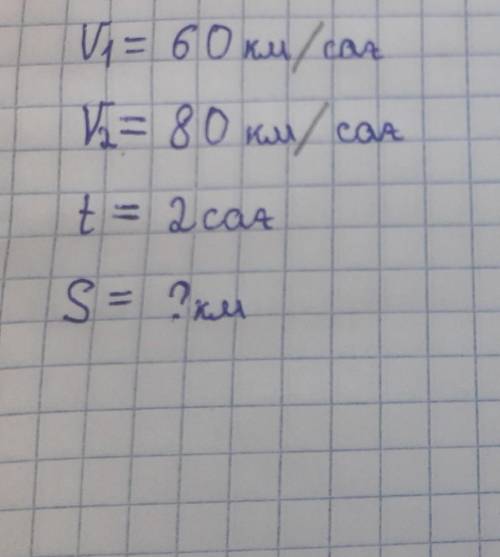 V₁ = 60 км/сағ
V₂ = 80 км/сағ
t = 2 сағ
S = ? км